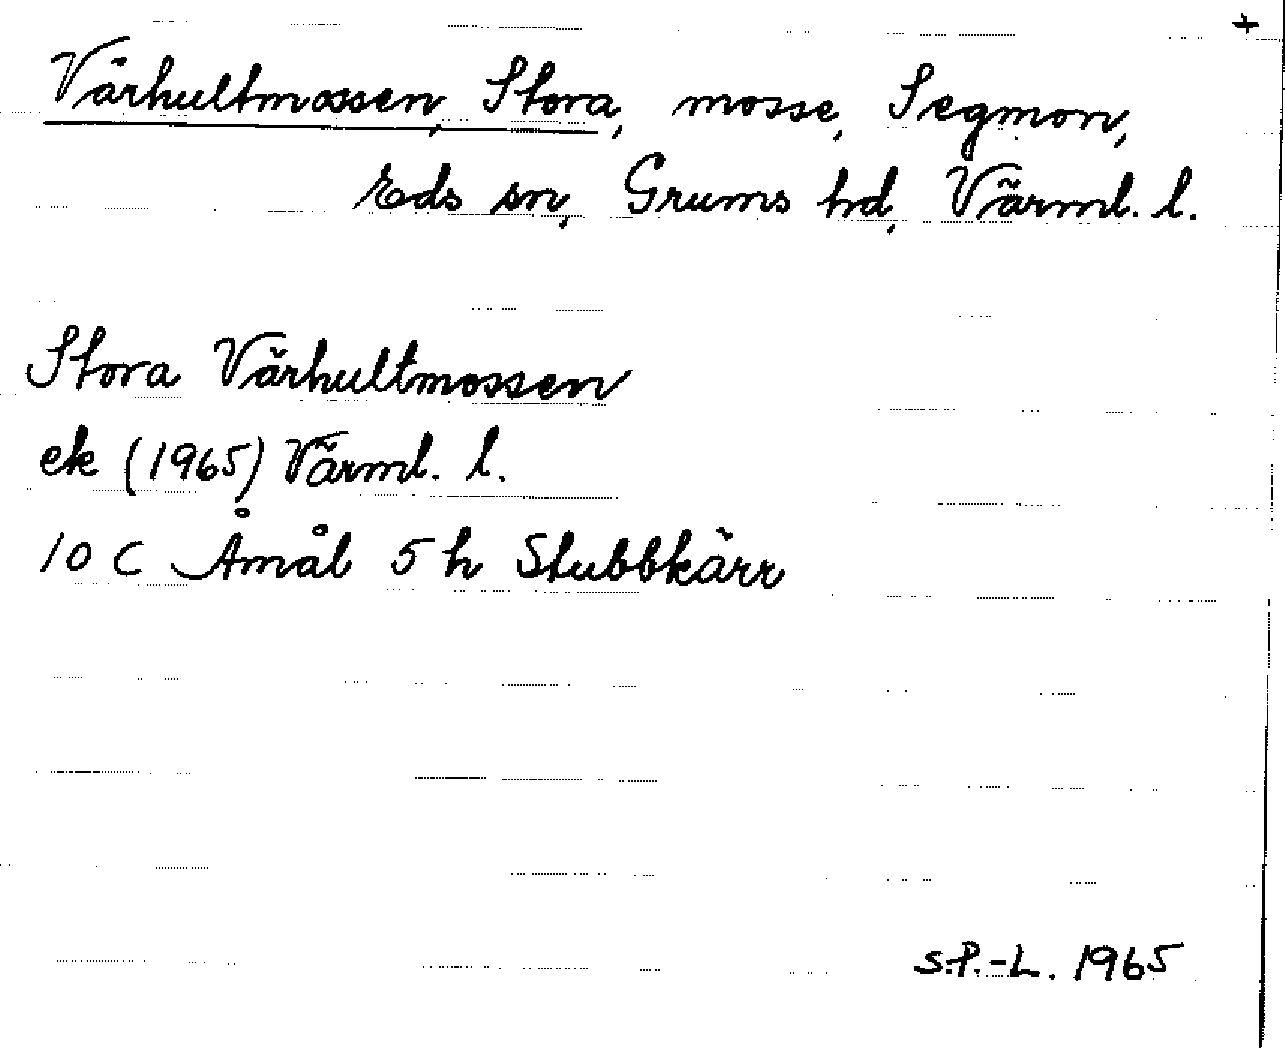 +
Värhultmossen, Stora, mosse, Segmon,
Eds sn, Grums hd, Värml. l.
Stora Värhultmossen
ek (1965) Värml. l.
10 C Åmål 5 h Stubbkärr
S.P.-L. 1965